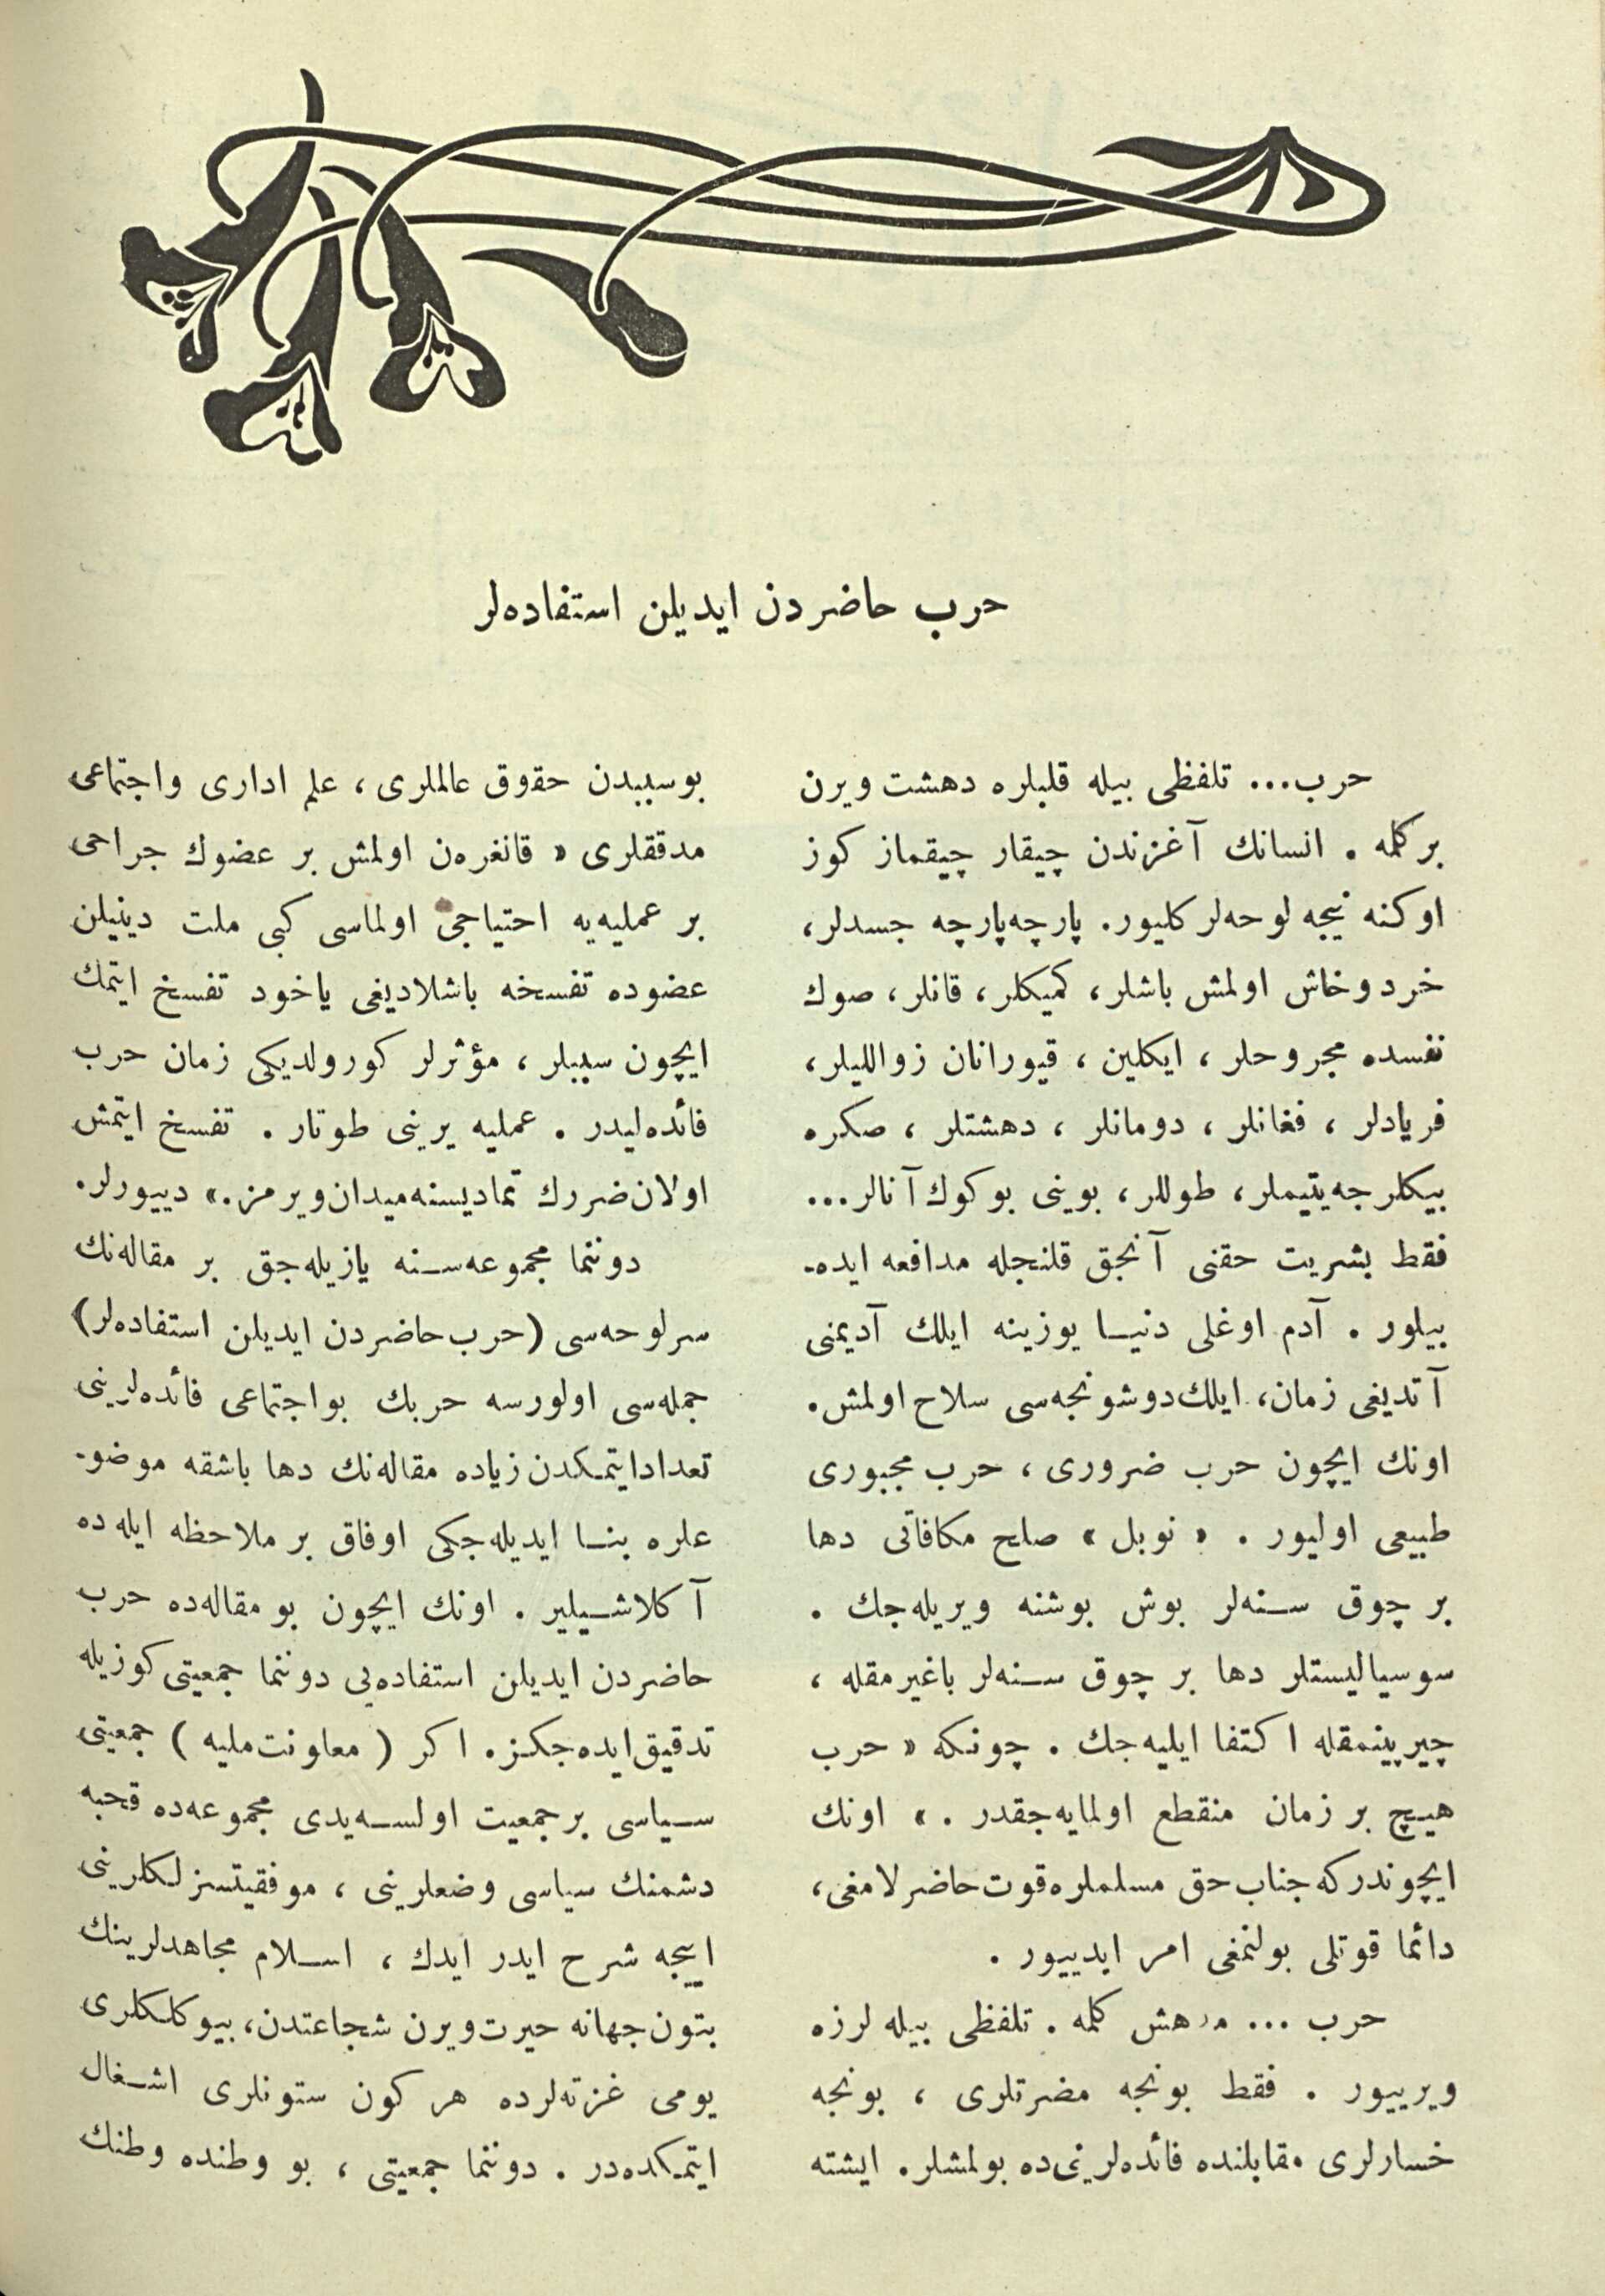 حرب حاضردن ایدیلن استفاده‌لر
حرب... تلفظی بیله قلبلره دهشت ویرن
بر کلمه . انسانك آغزندن چیقار چیقماز كوز
اوكنه نیجه لوحه‌لر كلیور. پارچه‌پارچه جسدلر،
خرد و خاش اولمش باشلر، كمیكلر، قانلر، صوك
نفسده مجروحلر ، ایكلین ، قیورانان زواللیلر،
فریادلر ، فغانلر ، دومانلر ، دهشتلر ، صكره
بیكلرجه‌یتیملر، طوللر، بوینی بوكوك آنالر...
فقط بشریت حقنی آنجق قلنجله مدافعه ایده-
بیلور . آدم اوغلی دنیــا یوزینه ایلك آدیمنی
آتدیغی زمان، ایلك‌دوشونجه‌سی سلاح اولمش.
اونك ایچون حرب ضروری ، حرب مجبوری
طبیعی اولیور . « نوبل » صلح مكافاتی دها
بر چوق ســنه‌لر بوش بوشنه ویریله‌جك .
سوسیالیستلر دها بر چوق ســنه‌لر باغیرمقله ،
چیرپینمقله اكتفا ایلیه‌جك . چونكه « حرب
هیــچ بر زمان منقطع اولمایه‌جقدر . » اونك
ایچوندركه جناب‌حق مسلملره‌قوت‌حاضرلامغی،
دائما قوتلی بولنمغی امر ایدییور .
حرب ... مدهش كلمه . تلفظی بیله لرزه
ویرییور . فقط بونجه مضرتلری ، بونجه
خسارلری مقابلنده فائده‌لرینی‌ده بولمشلر. ایشته
بوسببدن حقوق عالملری ، علم اداری واجتماعی
مدققلری « قانغره‌ن اولمش بر عضوك جراحی
بر عملیه‌یه احتیاجی اولماسی كبی ملت دینیلن
عضوده تفسخه باشلادیغی یاخود تفسخ ایتمك
ایچون سببلر ، مؤثرلر كورولدیكی زمان حرب
فائده‌لیدر . عملیه یرینی طوتار . تفسخ ایتمش
اولان‌ضررك تمادیسنه‌میدان‌ویرمز.» دییورلر.
دوننما مجموعه‌ســنه یازیله‌جق بر مقاله‌نك
سرلوحه‌سی (حرب‌حاضردن ایدیلن استفاده‌لر)
جمله‌سی اولورسه حربك بواجتماعی فائده‌لرینی
تعدادایتمــكدن زیاده مقاله‌نك دها باشقه موضو-
علره بنــا ایدیله‌جكی اوفاق بر ملاحظه ایله ده
آكلاشــیلیر . اونك ایچون بو مقاله‌ده حرب
حاضردن ایدیلن استفاده‌یی دوننما جمعیتی كوزیله
تدقیق‌ایده‌جكــز. اكر ( معاونت‌ملیه ) جمعیتی
ســیاسی برجمعیت اولســه‌یدی مجموعه‌ده قحبه
دشمنك سیاسی وضعلرینی ، موفقیتسزلكلرینی
اییجه شرح ایدر ایدك ، اســلام مجاهدلرینك
بتون‌جهانه حیرت‌ویرن شجاعتدن، بیوكلــكلری
یومی غزته‌لرده هر كون ستونلری اشــغال
ایتمــكده‌در . دوننما جمعیتی ، بو وطنده وطنك